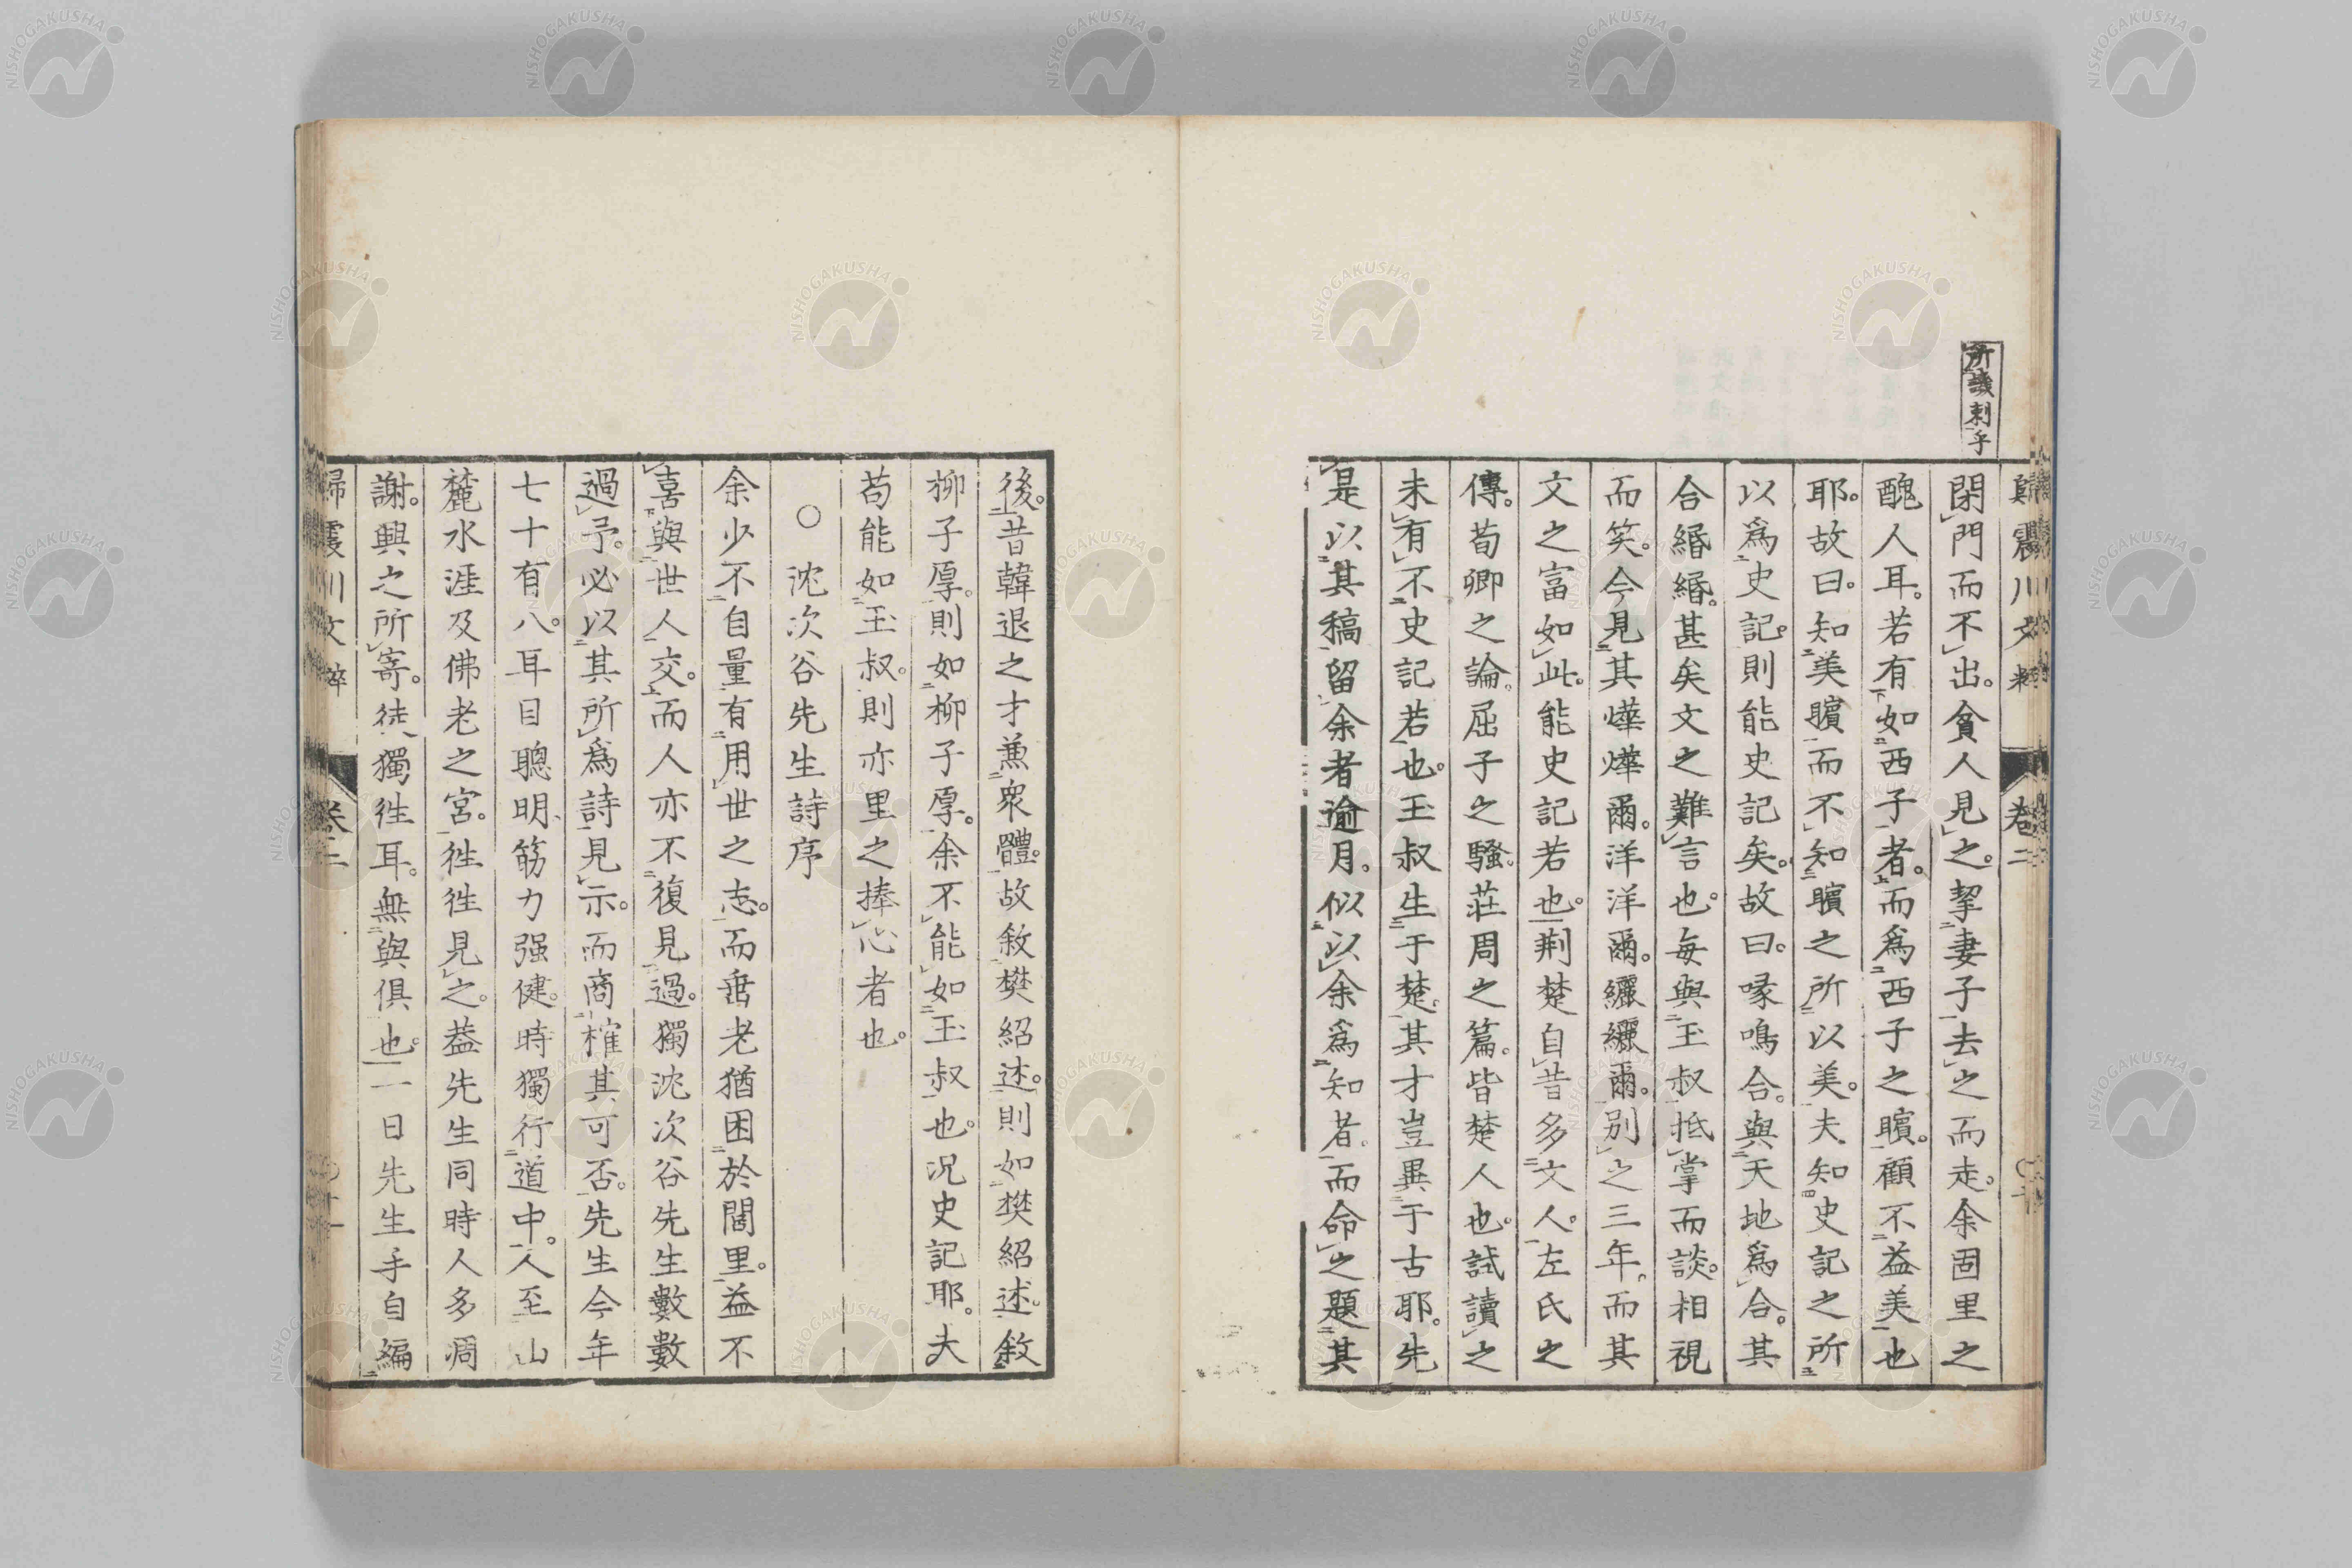 所譏刺乎
歸震川文粹 卷二
閉門而不出。貧人見之。挈妻子去之而走。余固里之
醜人耳。若有如西子者。而爲西子之矉。顧不益美也
耶。故曰。知美矉而不知矉之所以美。夫知史記之所
以爲史記。則能史記矣。故曰。喙鳴合。與天地爲合。其
合緡緡。甚矣文之難言也。每與玉叔抵掌而談。相視
而笑。今見其燁燁爾。洋洋爾。纚纚爾。別之三年。而其
文之富如此。能史記若也。荆楚自昔多文人。左氏之
傳。荀卿之論。屈子之騷。莊周之篇。皆楚人也。試讀之
未有不史記若也。玉叔生于楚。其才豈異于古耶。先
是以其稿留余者逾月。似以余爲知者。而命之題其
後。昔韓退之才兼衆體。故敘樊紹述。則如樊紹述。敘
柳子厚。則如柳子厚。余不能如玉叔也。况史記耶。夫
苟能如玉叔。則亦里之捧心者也。
○沈次谷先生詩序
余少不自量有用世之志。而垂老猶困於閭里。益不
喜與世人交。而人亦不復見過。獨沈次谷先生數數
過予。必以其所爲詩見示。而商榷其可否。先生今年
七十有八。耳目聰明、筋力强健。時獨行道中。人至山
麓水涯及佛老之宮。徃徃見之。葢先生同時人多凋
謝。興之所寄。徒獨徃耳。無與俱也。一日先生手自編
歸震川文粹 卷二